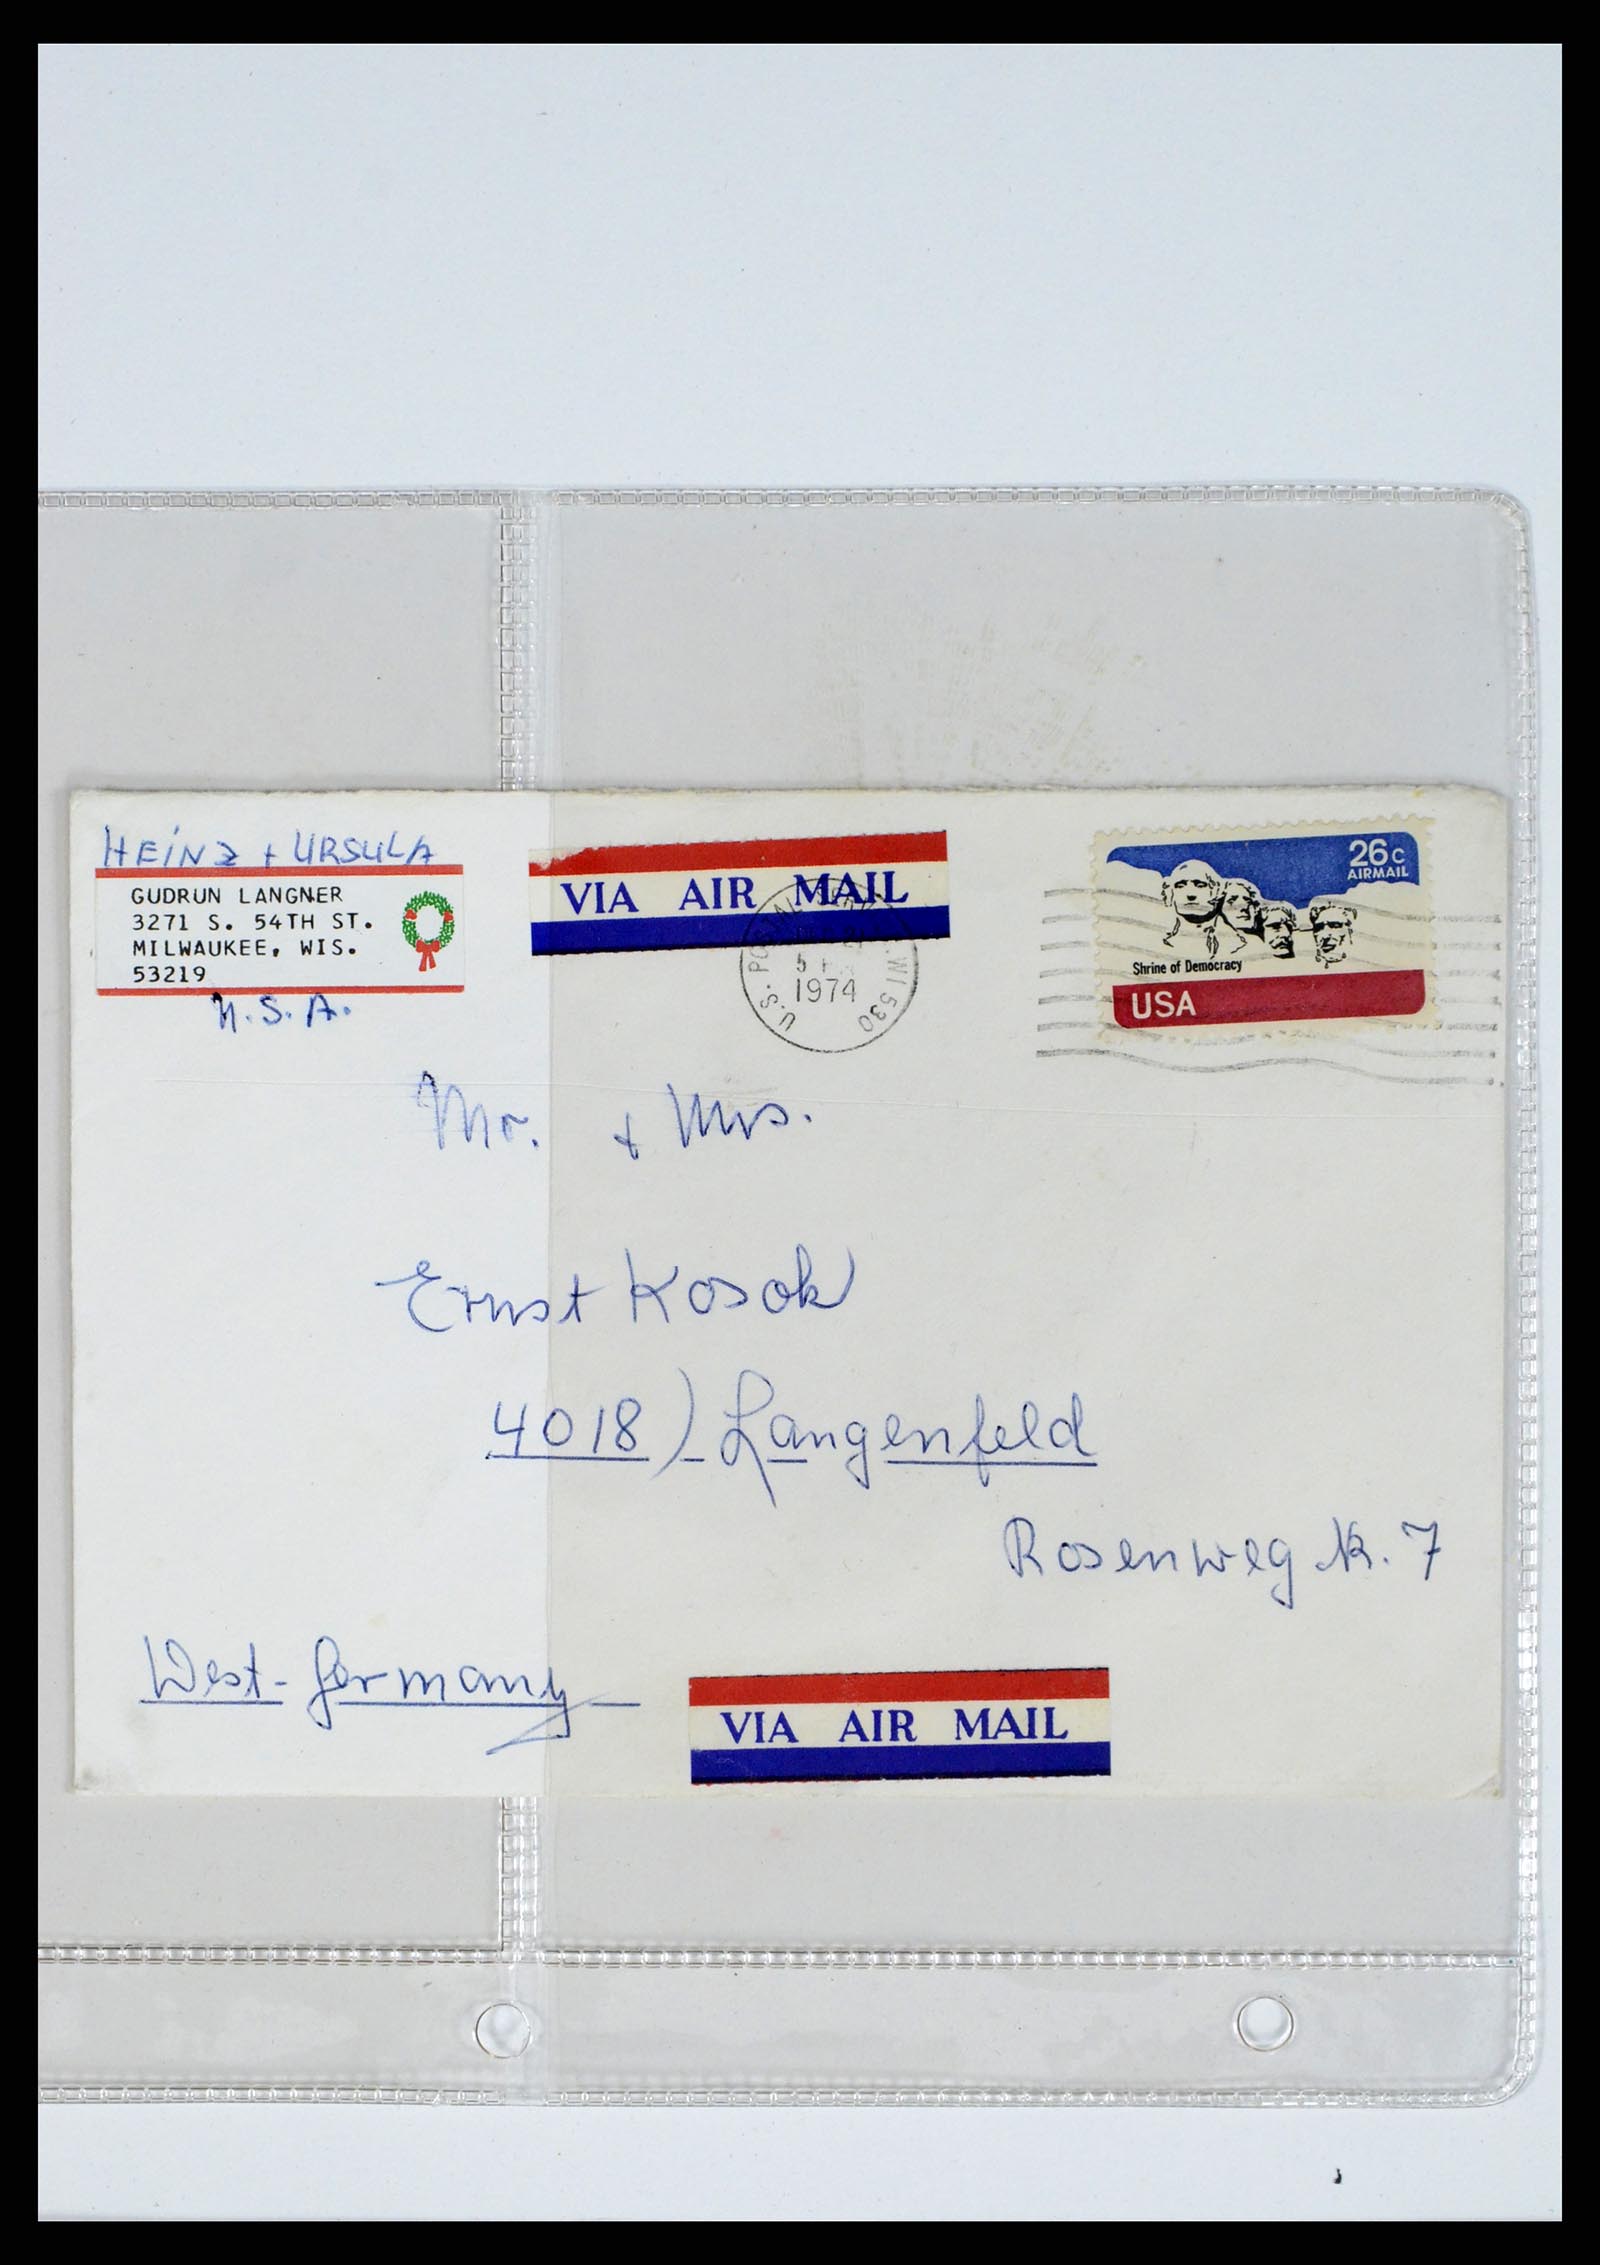 HEINZ + URSULA
GUDRUN LANGNER
3271 S. 54TH ST.
MILWAUKEE, WIS.
53219
U.S.A.
VIA AIR MAIL
U.S. POSTAL WI 530
1974
26c
AIRMAIL
Shrine of Democracy
USA
Mr. + Mrs.
Ernst Kosok
4018) Langenfeld
Rosenweg Nr. 7
West-Germany
VIA AIR MAIL